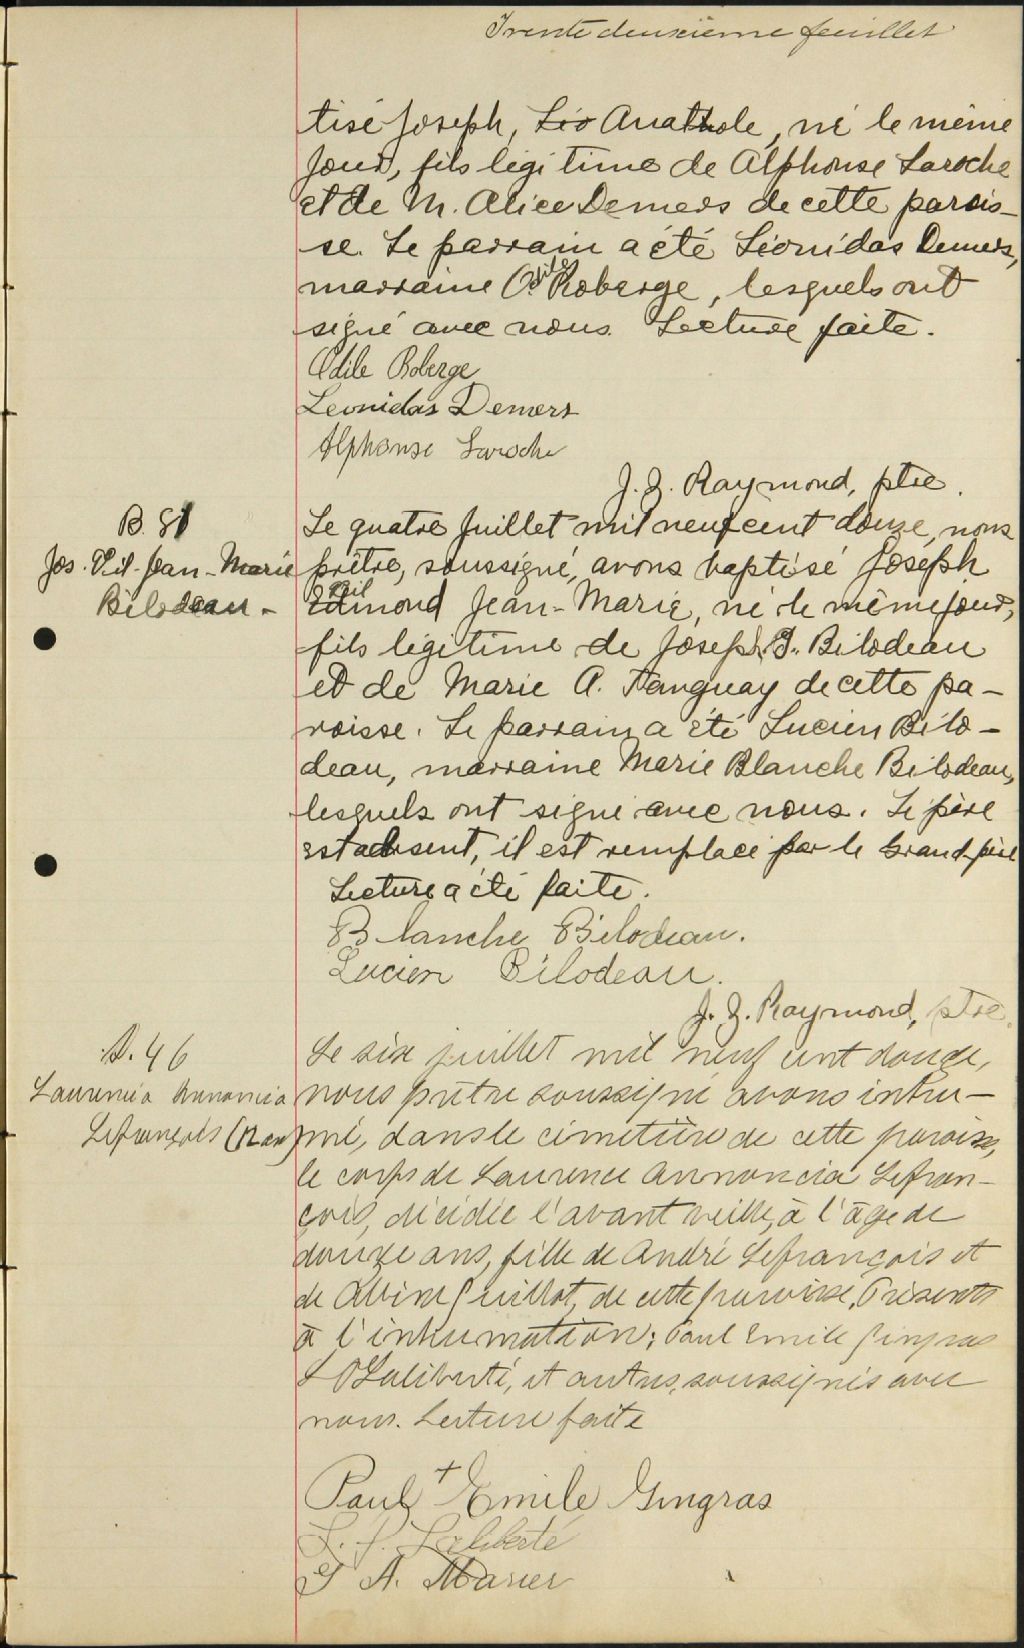 Trente deuxième feuillet
tisé Joseph, Léo Anathole, né le même
jour, fils légitime de Alphonse Laroche
et de M. Alice Demers de cette parois-
se. Le parrain a été Léonidas Demers,
marraine Odile Roberge, lesquels ont
signé avec nous. Lecture faite.
Odile Roberge
Leonidas Demers
Alphonse Laroche
J. Z. Raymond, ptre.
B. 81
Jos. Jean-Marie
Bilodeau -
Le quatre Juillet mil neuf cent douze, nous
prêtre, soussigné, avons baptisé Joseph
Edmond Jean-Marie, né le même jour,
fils légitime de Joseph J. Bilodeau
et de Marie A. Tanguay de cette pa-
roisse. Le parrain a été Lucien Bilo-
deau, marraine Marie Blanche Bilodeau,
lesquels ont signé avec nous. Le père
est absent, il est remplacé par le Grand-père
Lecture a été faite.
Blanche Bilodeau.
Lucien Bilodeau.
J. Z. Raymond, ptre.
S. 46
Laurencia Annoncia
Lefrançois (12 ans)
Le six juillet mil neuf cent douze,
nous prêtre soussigné avons inhu-
mé, dans le cimetière de cette paroisse,
le corps de Laurence Annoncia Lefran-
çois, décédée l'avant veille, à l'âge de
douze ans, fille de André Lefrançois et
de Albina Guillot, de cette paroisse. Présents
à l'inhumation; Paul Emile Gingras
Laliberté, et autres, soussignés avec
nous. Lecture faite
Paul Emile Gingras
Laliberté
A. Marier